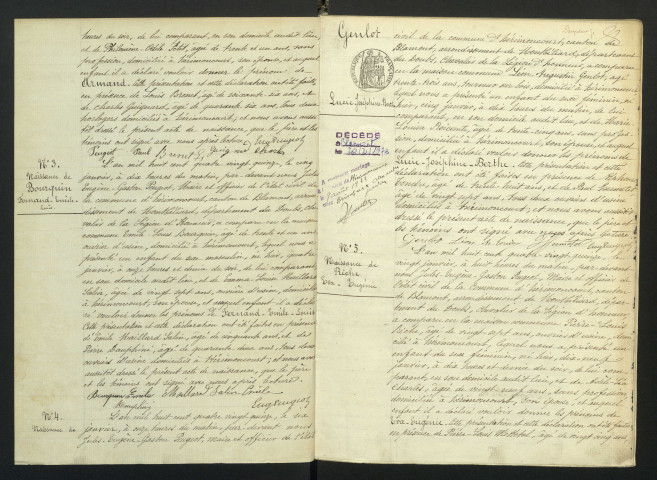 heures du soir, de lui comparant, en son domicile audit lieu,
et de Philomène Adèle Petit, âgée de trente et un ans, sans
profession, domiciliée à Hérimoncourt, son épouse, et auquel
enfant il a déclaré vouloir donner le prénom de
Armand. Cette présentation et cette déclaration ont été faites
en présence de Louis Brandt, âgé de soixante six ans,
de Charles Guignard, âgé de quarante six ans, tous deux
horlogers domiciliés à Hérimoncourt, et nous avons aussi-
tôt dressé le présent acte de naissance, que le père et les
témoins ont signé avec nous après lecture
N° 3.
Naissance de
Bourquin
Fernand Emile
Louis
L'an mil huit cent quatre vingt quinze, le cinq
janvier, à dix heures du matin, par devant nous Jules
Eugène Gaston Peugeot, Maire et officier de l'état civil de
la commune d'Hérimoncourt, canton de Blamont, arron-
dissement de Montbéliard, département du Doubs, cheva-
lier de la Légion d'Honneur, a comparu en la maison
commune Emile Louis Bourquin, âgé de trente et un ans
ouvrier d'usine, domicilié à Hérimoncourt, lequel nous a
présenté un enfant du sexe masculin, né hier, quatre
janvier, à onze heures et demie du soir, de lui comparant
en son domicile audit lieu, et de Emma Louise Maillard
Salin, âgée de vingt sept ans, ouvrière d'usine, domiciliée
à Hérimoncourt, son épouse, et auquel enfant il a décla-
ré vouloir donner les prénoms de Fernand Emile Louis
Cette présentation et cette déclaration ont été faites en présence
d'Emile Maillard Salin, âgé de cinquante ans, et de
Pierre Dauphin, âgé de quarante deux ans, tous deux
ouvriers d'usine domiciliés à Hérimoncourt, et nous avons
aussitôt dressé le présent acte de naissance, que le père
et les témoins ont signé avec nous après lecture.
Bourquin Emile Maillard Salin Emile
N° 4.
Naissance de
L'an mil huit cent quatre vingt quinze, le six
janvier, à onze heures du matin, par devant nous
Jules Eugène Gaston Peugeot, maire et officier de l'état
Genlot
Lucie Joséphine Berthe
DÉCÉDÉ
civil de la commune d'Hérimoncourt, canton de
Blamont, arrondissement de Montbéliard, département
du Doubs, Chevalier de la Légion d'honneur, a comparu
en la maison commune Léon Augustin Genlot, âgé
trente trois ans, domicilié à Hérimoncourt
lequel nous a présenté un enfant du sexe féminin, né
hier, cinq janvier, à dix heures du matin, de lui
comparant, en son domicile audit lieu, et de Marie
Louise Poivente, âgée de trente cinq ans, sans profes-
sion, domiciliée à Hérimoncourt, son épouse, et auquel
enfant il a déclaré vouloir donner les prénoms de
Lucie Joséphine Berthe. Cette présentation et cette
déclaration ont été faites en présence de
âgé de trente ans, et de Paul
âgé de vingt sept ans, tous deux ouvriers d'usine
domiciliés à Hérimoncourt, et nous avons aussitôt
dressé le présent acte de naissance, que le père et
les témoins ont signé avec nous après lecture
N° 5.
Naissance de
Pêche
Eva Eugénie
L'an mil huit cent quatre vingt quinze, le
vingt janvier, à huit heures du matin, par devant
nous Jules Eugène Gaston Peugeot, Maire et officier de
l'état civil de la commune d'Hérimoncourt, canton
de Blamont, arrondissement de Montbéliard, dépar-
tement du Doubs, chevalier de la Légion d'honneur
a comparu en la maison commune Pierre Louis
Pêche, âgé de vingt sept ans, ouvrier d'usine, domi-
cilié à Hérimoncourt, lequel nous a présenté un
enfant du sexe féminin, né hier, dix neuf
janvier, à dix heures et demie du soir, de lui com-
parant en son domicile audit lieu, et de
Charles, âgée de vingt neuf ans, sans profession
domiciliée à Hérimoncourt, son épouse, et auquel
enfant il a déclaré vouloir donner les prénoms de
Eva Eugénie. Cette présentation et cette déclaration ont été faites
en présence de Pierre Louis âgé de vingt cinq ans,